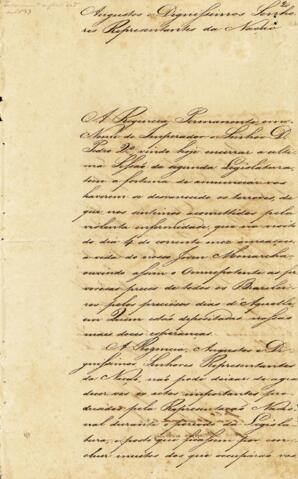 Augustos e Dignissimos Senho-
res Representantes da Nação
A Regencia Permanente em
Nome do Imperador o Senhor D.
Pedro 2º vindo hoje encerrar a ulti-
ma Sessão da segunda Legislatura,
tem a fortuna de annunciar vos
haverem se desvanecido os terrores, de
que nos sentimos acomettidos pela
violenta enfermidade, que na noite
do dia 4 do corrente mez ameaçou
a vida do nosso Joven Monarcha,
ouvindo assim o Omnipotente as fer
vorosas preces de todos os Brasilei
ros pelos preciosos dias d'Aquelle,
em Quem estão depositadas nossas
mais doces esperanças.
A Regencia, Augustos e Di-
gnissimos Senhores Representantes
da Nação, não pode deixar de agra
decer vos os actos importantes pro-
digados pela Representação Nacio
nal durante o periodo da Legisla
tura, e posto que ficassem por con-
cluir muitos dos que occupárão vos